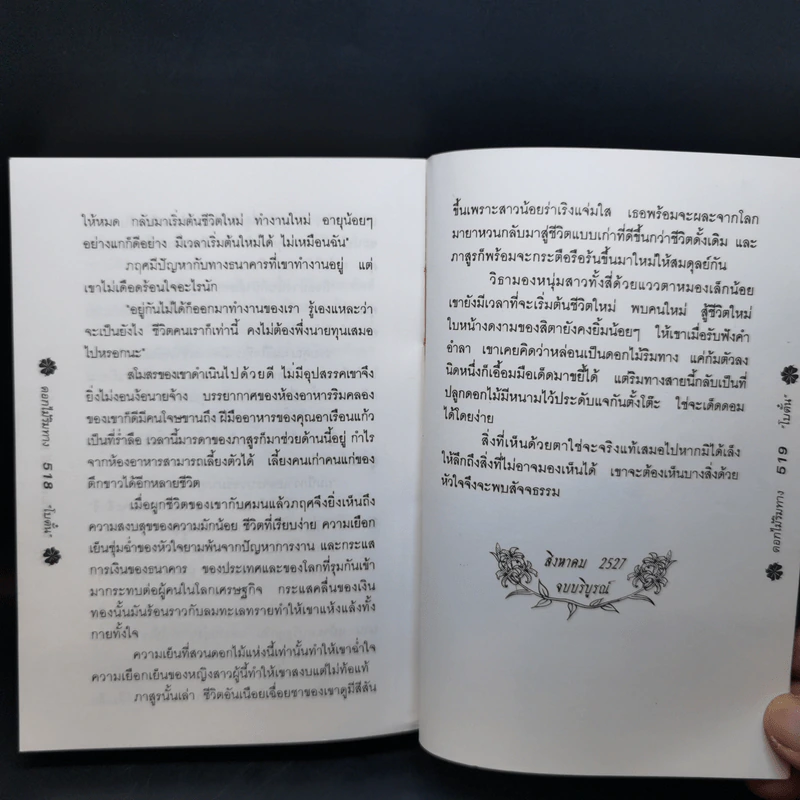 ให้หมด กลับมาเริ่มต้นชีวิตใหม่ ทำงานใหม่ อายุน้อยๆ
อย่างแกก็ดีอย่าง มีเวลาเริ่มต้นใหม่ได้ ไม่เหมือนฉัน"
ภฤศมีปัญหากับทางธนาคารที่เขาทำงานอยู่ แต่
เขาไม่เดือดร้อนใจอะไรนัก
"อยู่กันไม่ได้ก็ออกมาทำงานของเรา รู้เองแหละว่า
จะเป็นยังไง ชีวิตคนเราก็เท่านี้ คงไม่ต้องพึ่งนายทุนเสมอ
ไปหรอกนะ"
สโมสรของเขาดำเนินไปด้วยดี ไม่มีอุปสรรคเขาจึง
ยิ่งไม่งอนง้อนายจ้าง บรรยากาศของห้องอาหารริมคลอง
ของเขาก็ดีมีคนโจษขานถึง ฝีมืออาหารของคุณอาเรือนแก้ว
เป็นที่ร่ำลือ เวลานี้มารดาของภาสูรก็มาช่วยด้านนี้อยู่ กำไร
จากห้องอาหารสามารถเลี้ยงตัวได้ เลี้ยงคนเก่าคนแก่ของ
ตึกขาวได้อีกหลายชีวิต
เมื่อผูกชีวิตของเขากับศมนแล้วภฤศจึงยิ่งเห็นถึง
ความสงบสุขของความมักน้อย ชีวิตที่เรียบง่าย ความเยือก
เย็นชุ่มฉ่ำของหัวใจยามพ้นจากปัญหาการงาน และกระแส
การเงินของธนาคาร ของประเทศและของโลกที่รุมกันเข้า
มากระทบต่อผู้คนในโลกเศรษฐกิจ กระแสคลื่นของเงิน
ทองนั้นมันร้อนราวกับลมทะเลทรายทำให้เขาแห้งแล้งทั้ง
กายทั้งใจ
ความเย็นที่สวนดอกไม้แห่งนี้เท่านั้นทำให้เขาฉ่ำใจ
ความเยือกเย็นของหญิงสาวผู้นี้ทำให้เขาสงบแต่ไม่ท้อแท้
ภาสูรนั้นเล่า ชีวิตอันเนือยเฉื่อยชาของเขาดูมีสีสัน
ดอกไม้ริมทาง 518 "โบตั๋น"
ขึ้นเพราะสาวน้อยร่าเริงแจ่มใส เธอพร้อมจะผละจากโลก
มายาหวนกลับมาสู่ชีวิตแบบเก่าที่ดีขึ้นกว่าชีวิตดั้งเดิม และ
ภาสูรก็พร้อมจะกระตือรือร้นขึ้นมาใหม่ให้สมดุลย์กัน
วิธามองหนุ่มสาวทั้งสี่ด้วยแววตาหมองเล็กน้อย
เขายังมีเวลาที่จะเริ่มต้นชีวิตใหม่ พบคนใหม่ สู้ชีวิตใหม่
ใบหน้างดงามของสีตายังคงยิ้มน้อยๆ ให้เขาเมื่อรับฟังคำ
อำลา เขาเคยคิดว่าหล่อนเป็นดอกไม้ริมทาง แค่ก้มตัวลง
นิดหนึ่งก็เอื้อมมือเด็ดมาขยี้ได้ แต่ริมทางสายนี้กลับเป็นที่
ปลูกดอกไม้มีหนามไว้ประดับแจกันตั้งโต๊ะ ใช่จะเด็ดดอม
ได้โดยง่าย
สิ่งที่เห็นด้วยตาใช่จะจริงแท้เสมอไปหากมิได้เล็ง
ให้ลึกถึงสิ่งที่ไม่อาจมองเห็นได้ เขาจะต้องเห็นบางสิ่งด้วย
หัวใจจึงจะพบสัจจธรรม
สิงหาคม 2527
จบบริบูรณ์
ดอกไม้ริมทาง 519 "โบตั๋น"